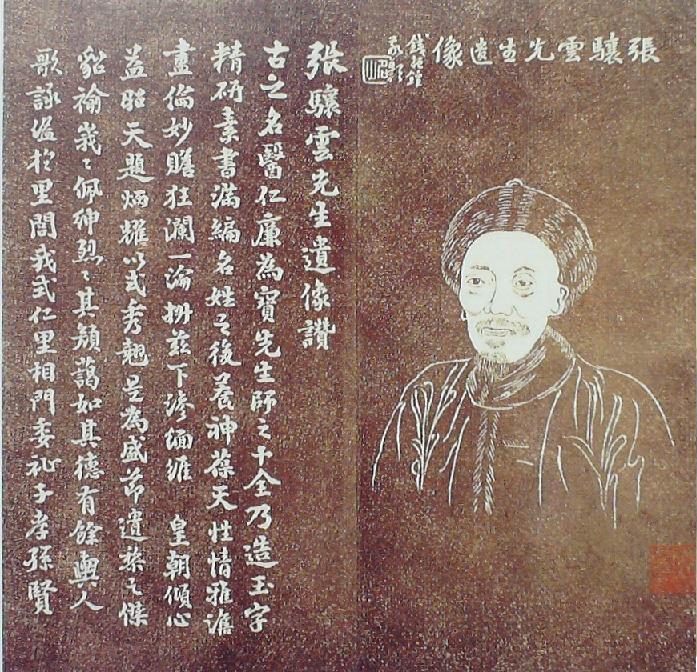 張驤雲先生遺像
張驤雲先生遺像讚
古之名醫仁廉為寶先生師之十全乃造玉字
精研素書滿編名姓之後養神葆天性情雅澹
畫倫妙狂瀾一淪茲下滲緬維 皇朝傾心
益昭天題炳耀以式秀翹是為盛節遺榮之傑
佩紳其藹如其德有餘輿人
歌詠溢於里閭我式仁里相門委祉子孝孫賢